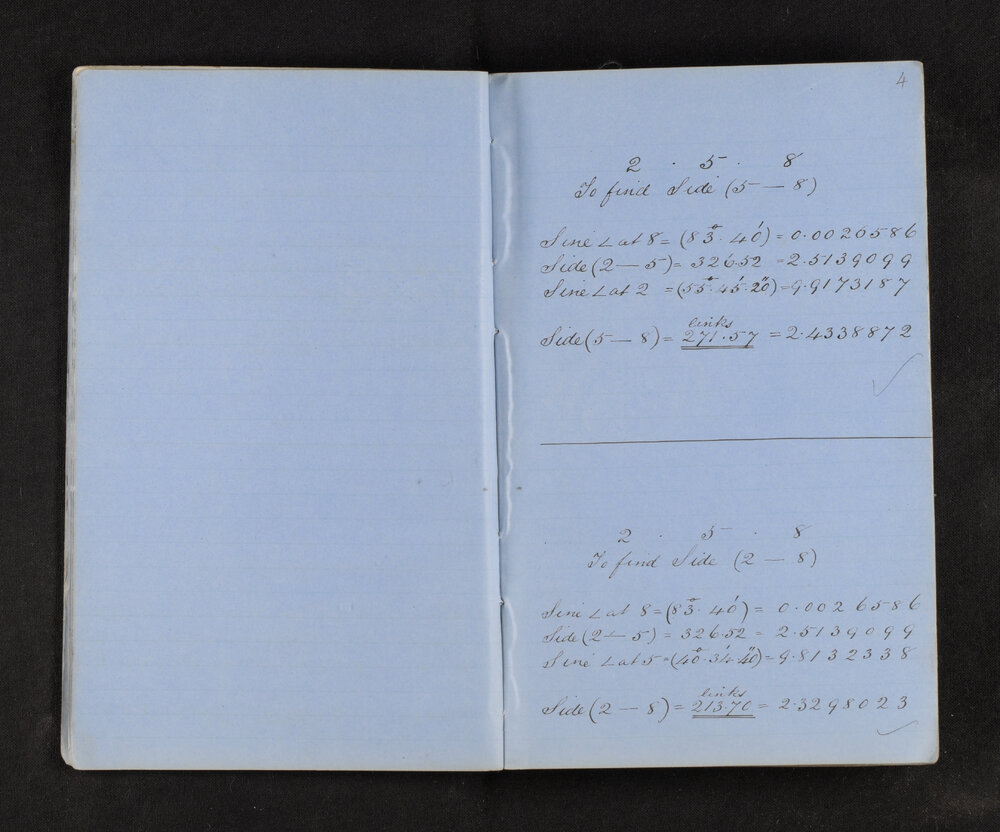 4
2 . 5 . 8
To find Side (5 — 8)
Sine ∠ at 8 = (83°. 40′) = 0.0026586
Side (2 — 5) = 326.52 = 2.5139099
Sine ∠ at 2 = (55°. 45′. 20″) = 9.9173187
links
Side (5 — 8) = 271.57 = 2.4338872
2 . 5 . 8
To find Side (2 — 8)
Sine ∠ at 8 = (83°. 40′) = 0.0026586
Side (2 — 5) = 326.52 = 2.5139099
Sine ∠ at 5 = (40°. 34′. 40″) = 9.8132338
links
Side (2 — 8) = 213.70 = 2.3298023